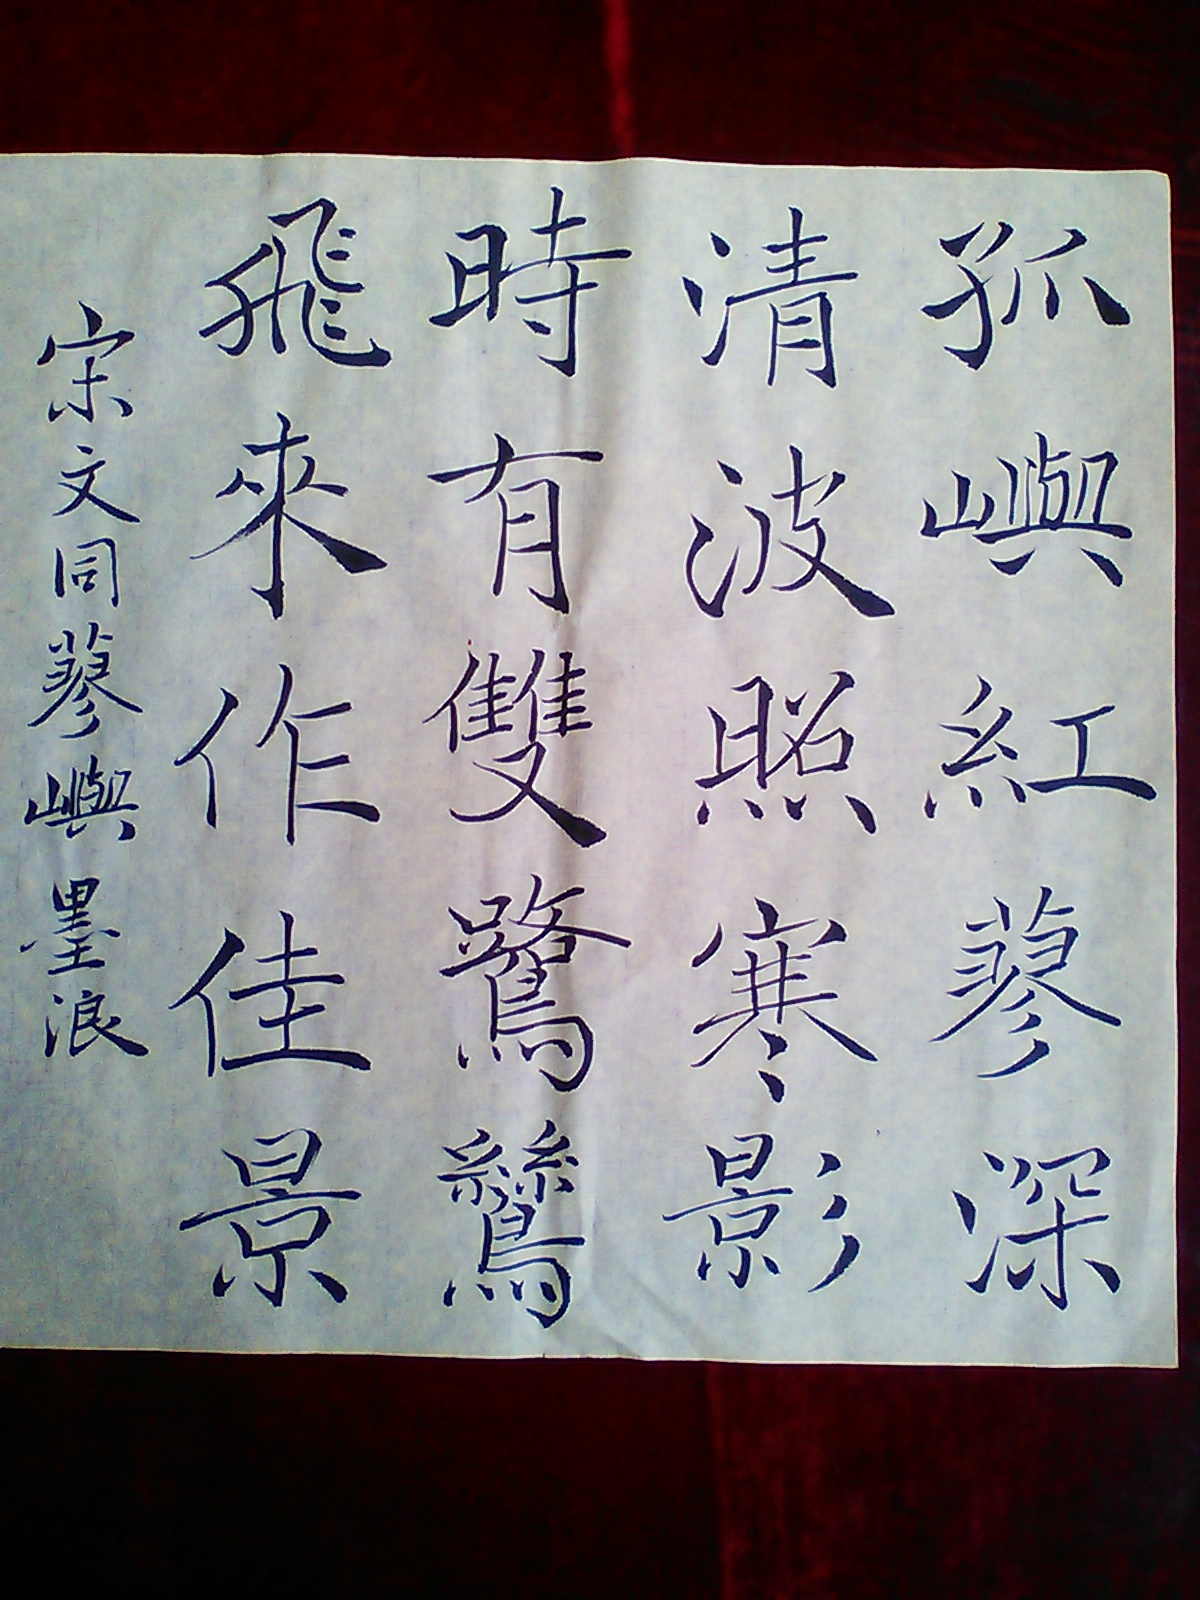 孤嶼紅蓼深
清波照寒影
時有雙鷺鷥
飛來作佳景
宋文同蓼嶼 墨浪